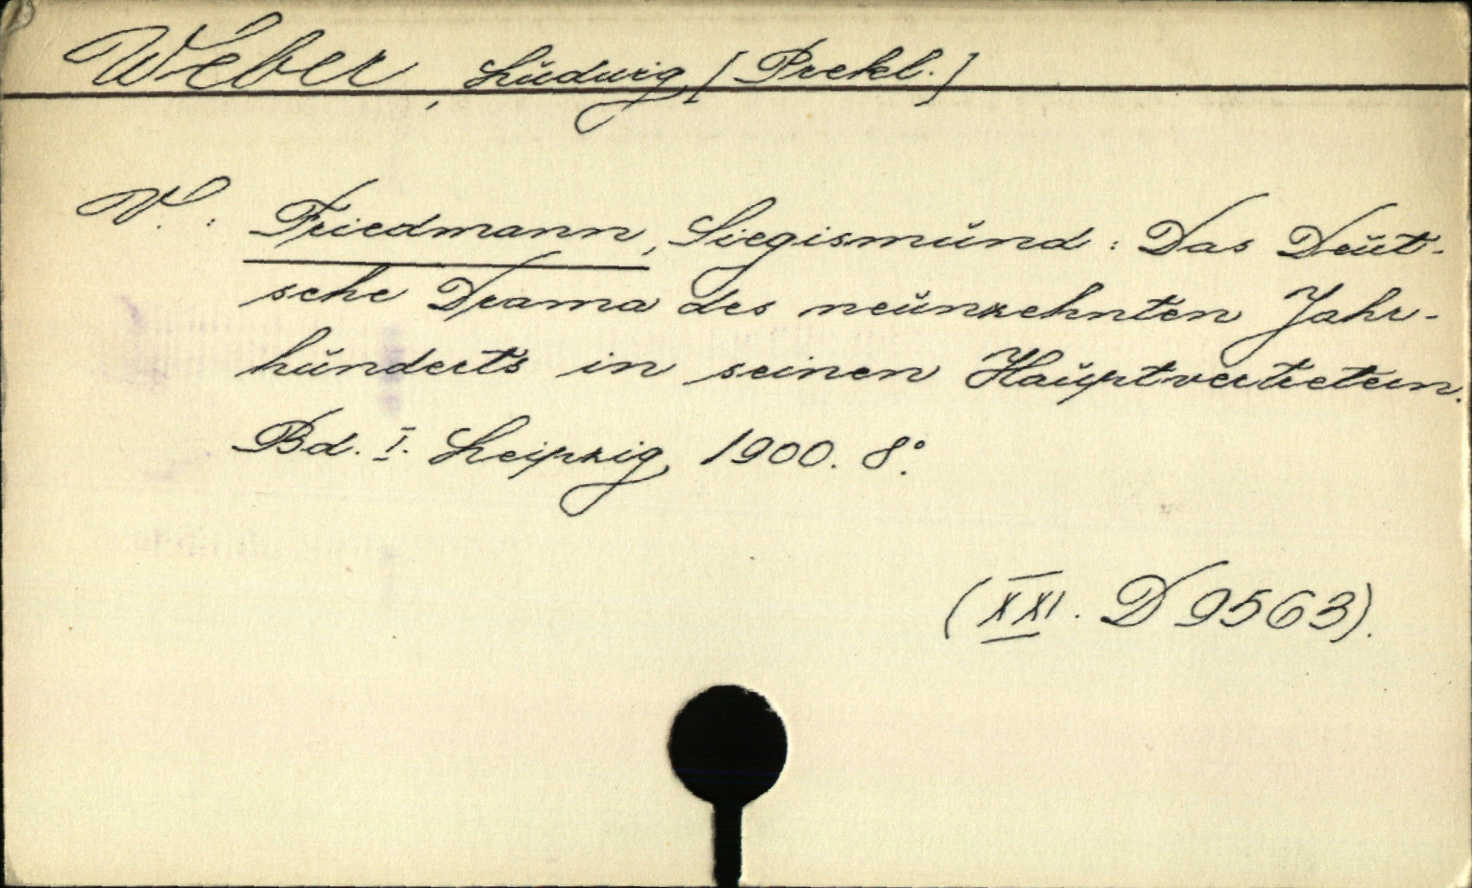 Weber, Ludwig [Prekl.]
V.: Friedmann, Siegismund: Das Deut-
sche Drama des neunzehnten Jahr-
hunderts in seinen Hauptvertretern.
Bd. I. Leipzig, 1900. 8°.
(XXI. D 9563).